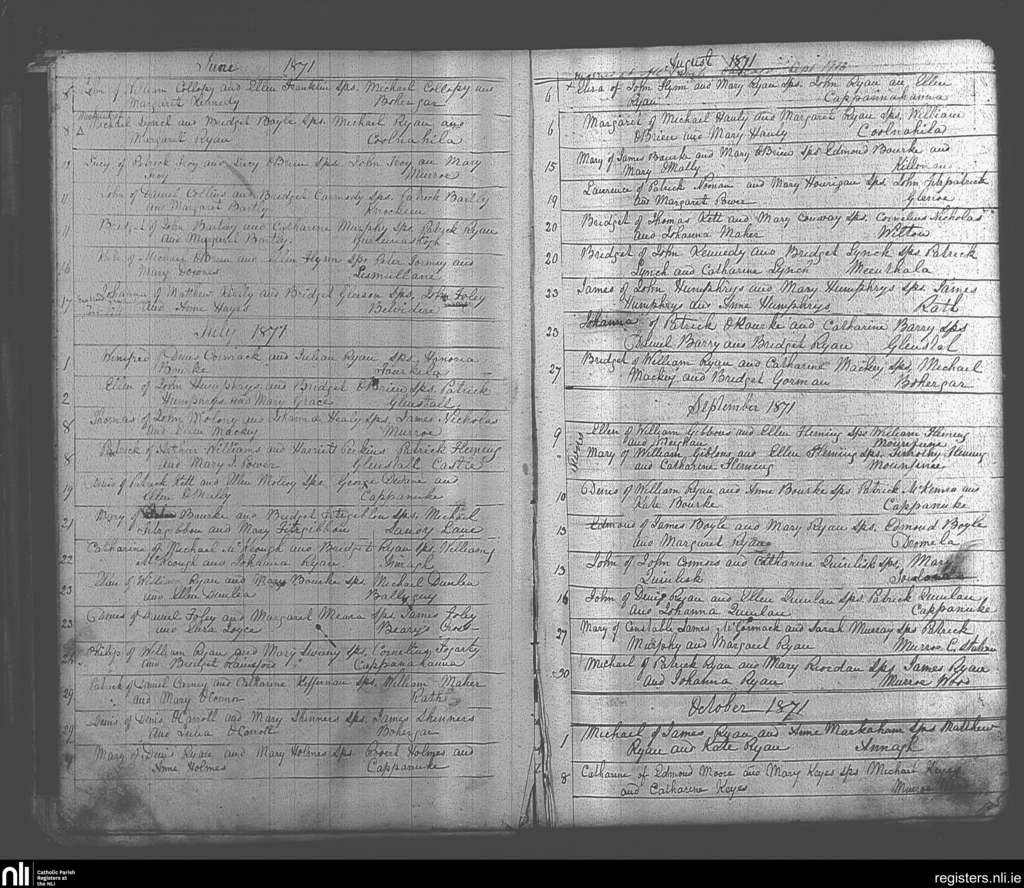 June 1871
of William Collopy and Ellen Franklin Sps. Michael Collopy and
Margaret Kennedy Bohergar
8 Michael Lynch and Bridget Boyle Sps. Michael Ryan and
Margaret Ryan Coolnahila
11 Lucy of Patrick Troy and Lucy OBrien Sps. John Troy an Mary
Troy Murroe
11 John of Daniel Collins and Bridget Carmody Sps. Patrick Bartley
and Margaret Bartley Knockeen
Bridget of John Bartley and Catharine Murphy Sps. Patrick Ryan
and Margaret Bartley.
16 of Michael OBrien and Ellen Flynn Sps Peter and
Mary Lismullane
17 Johanna of Matthew Kiely and Bridget Gleeson Sps. John Foley
and Anne Hayes Belvidere
July 1871
1 Winifred of Denis Cormack and Julian Ryan Sps. Honoria
Bourke
2 Ellen of John Humphrys and Bridget OBrien Sps. Patrick
Humphrys and Mary Grace Glenstall
8 Thomas of John Molony and Johanna Healy Sps. James Nicholas
and Ellen Mackey Murroe
8 Patrick of Arthur Williams and Harriet Perkins Patrick Fleming
and Mary J. Power Glenstall Castle
19 Denis of Patrick Kett and Ellen Molloy Sps. George Devane an
Ellen OMally Cappanuke
21 Mary of Bourke and Bridget Fitzgibbon Sps. Michael
Fitzgibbon and Mary Fitzgibbon Sandy Lane
22 Catharine of Michael McKeough and Bridget Ryan Sps. William
McKeough and Johanna Ryan Annagh
23 Ellen of William Ryan and Mary Bourke Sps. Michael Dunlea
and Ellen Dunlea Ballyguy
23 Denis of Daniel Foley and Margaret Meara Sps. James Foley
and Sara Joyce Bearys Cross
Philip of William Ryan and Mary Swiny Sps. Cornelius Fogarty
and Bridget Cappanahanna
29 Patrick of Daniel Carney and Catharine Heffernan Sps. William Maher
and Mary OConnor Rath
29 Denis of Denis OCarroll and Mary Skinners Sps. James Skinners
and Julia OCarroll Bohergar
Mary of Denis Ryan and Mary Holmes Sps. Robert Holmes and
Anne Holmes Cappanuke
August 1871
6 Eliza of John Flynn and Mary Ryan Sps. John Ryan an Ellen
Ryan Cappanahanna
6 Margaret of Michael Hauly and Margaret Ryan Sps. William
OBrien and Mary Hauly Coolnahila
15 Mary of James Bourke and Mary OBrien Sps. Edmond Bourke and
Mary OMally Killonan
19 Laurence of Patrick Noonan and Mary Hourigan Sps. John Fitzpatrick
and Margaret Power Glenoe
20 Bridget of Thomas Kett and Mary Conway Sps. Cornelius Nicholas
and Johanna Maher Wilton
20 Bridget of John Kennedy and Bridget Lynch Sps Patrick
Lynch and Catharine Lynch
23 James of John Humphrys and Mary Humphrys Sps James
Humphrys and Anne Humphrys Rath
23 Johanna of Patrick ORourke and Catharine Barry Sps
Daniel Barry and Bridget Ryan Glenstal
27 Bridget of William Ryan and Catharine Mackey Sps. Michael
Mackey and Bridget Gorman Bohergar
September 1871
9 Ellen of William Gibbons and Ellen Fleming Sps William Fleming
and Meghan
Mary of William Gibbons and Ellen Fleming Sps. Timothy Fleming
and Catharine Fleming
10 Denis of William Ryan and Anne Bourke Sps Patrick McKenna and
Kate Bourke Cappanuke
13 Edmond of James Boyle and Mary Ryan Sps. Edmond Boyle
and Margaret Ryan Dromela
13 John of John Connors and Catharine Quinlisk Sps. Mary
Quinlisk
16 John of Denis Ryan and Ellen Quinlan Sps. Patrick Quinlan
and Johanna Quinlan Cappanuke
27 Mary of Constable James McCormack and Sarah Murray Sps Patrick
Murphy and Margaret Ryan Murroe C. Station
30 Michael of Patrick Ryan and Mary Riordan Sps. James Ryan
and Johanna Ryan Murroe Wood
October 1871
1 Michael of James Ryan and Anne Markaham Sps Matthew
Ryan and Kate Ryan Annagh
8 Catharine of Edmond Moore and Mary Keyes Sps Michael Keyes
and Catharine Keyes Murroe
nli Catholic Parish
Registers at
the NLI
registers.nli.ie